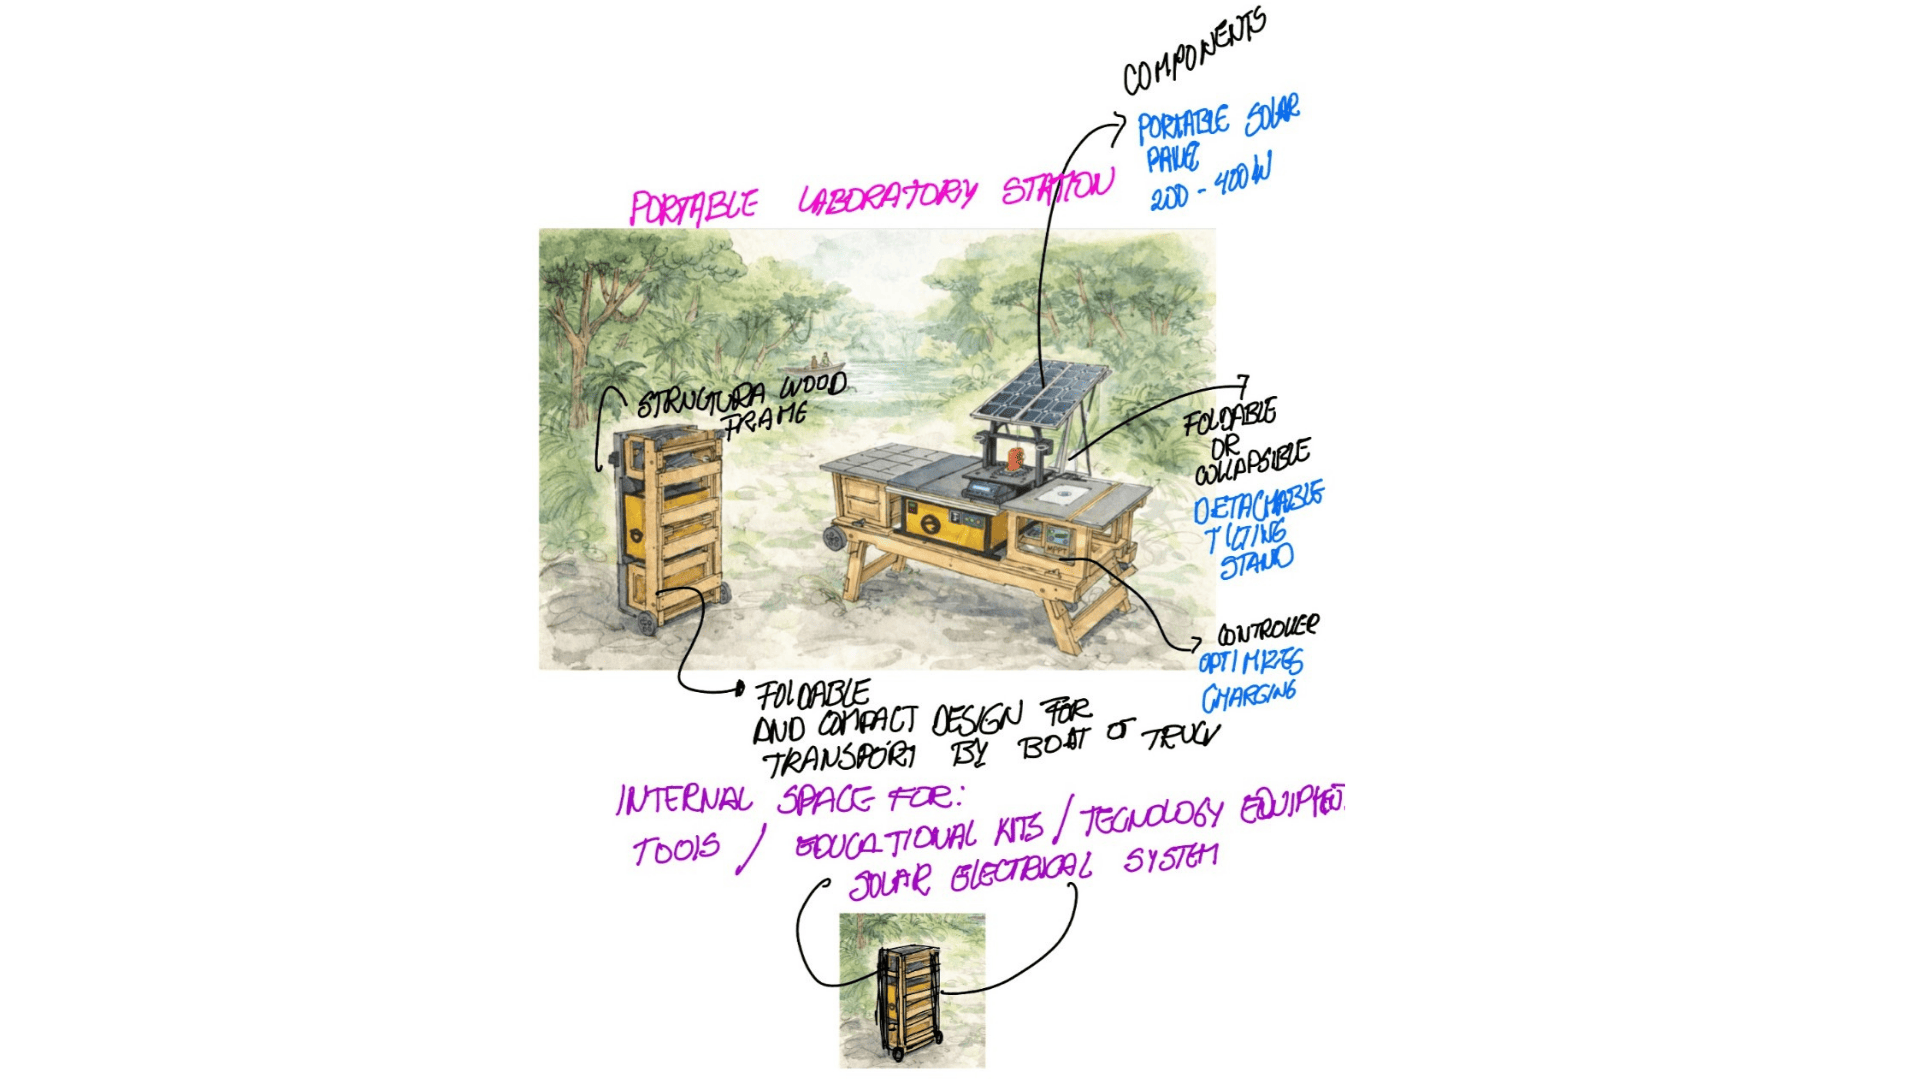 COMPONENTS
PORTABLE SOLAR
PANEL
200 - 400W
PORTABLE LABORATORY STATION
STRUCTURA WOOD
FRAME
FOLDABLE
OR
COLLAPSIBLE
DETACHABLE
TILTING
STAND
CONTROLLER
OPTIMIZES
CHARGING
FOLDABLE
AND COMPACT DESIGN FOR
TRANSPORT BY BOAT OR TRUCK
INTERNAL SPACE FOR:
TOOLS / EDUCATIONAL KITS / TECNOLOGY EQUIPMENT
SOLAR ELECTRICAL SYSTEM